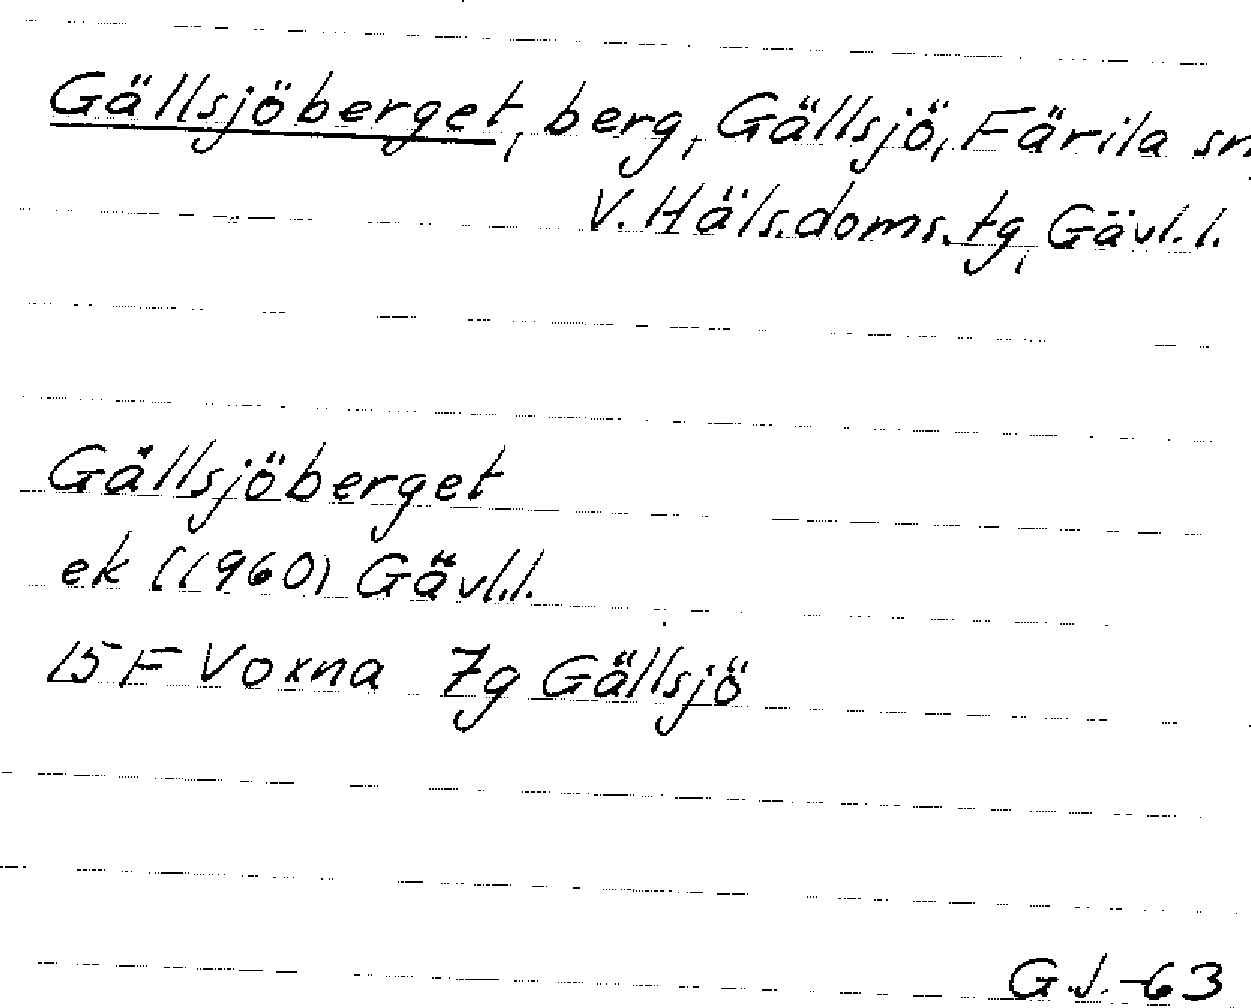 Gällsjöberget, berg, Gällsjö, Färila sn,
V. Häls. doms. tg, Gävl. l.
Gällsjöberget
ek (1960) Gävl. l.
15 F Voxna 7g Gällsjö
G.J.-63